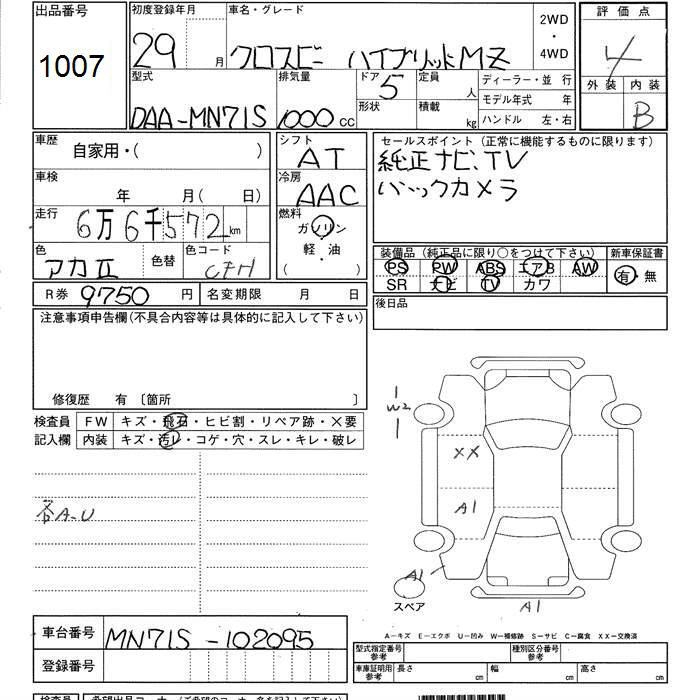 出品番号
1007
初度登録年月
29 月
車名・グレード
クロスビー ハイブリッドMZ
2WD
・
4WD
評価点
4
外装 内装
B
型式
DAA-MN71S
排気量
1000 CC
ドア 5
形状
定員 人
積載 kg
ディーラー・並 行
モデル年式 年
ハンドル 左・右
車歴
自家用・( )
シフト
AT
セールスポイント(正常に機能するものに限ります)
純正ナビ、TV
バックカメラ
車検
年 月( 日)
冷房
AAC
走行
6万6千572km
燃料
ガソリン
軽・油
( )
色
アカII
色替
色コード
CFH
装備品(純正品に限り○をつけて下さい)
PS PW ABS エアB AW
SR ナビ TV カワ
新車保証書
有 無
R券 9750 円
名変期限 月 日
後日品
注意事項申告欄(不具合内容等は具体的に記入して下さい)
修復歴 有 〔箇所 〕
検査員
記入欄
FW キズ・飛石・ヒビ割・リペア跡・×要
内装 キズ・汚レ・コゲ・穴・スレ・キレ・破レ
各A-U
W2
XX
A1
A1
A1
スペア
A-キズ E-エクボ U-凹み W-補修跡 S-サビ C-腐食 XX-交換済
車台番号
MN71S-102095
登録番号
型式指定番号
参考
種別区分番号
参考
車庫証明用
参考
長さ cm
幅 cm
高さ cm